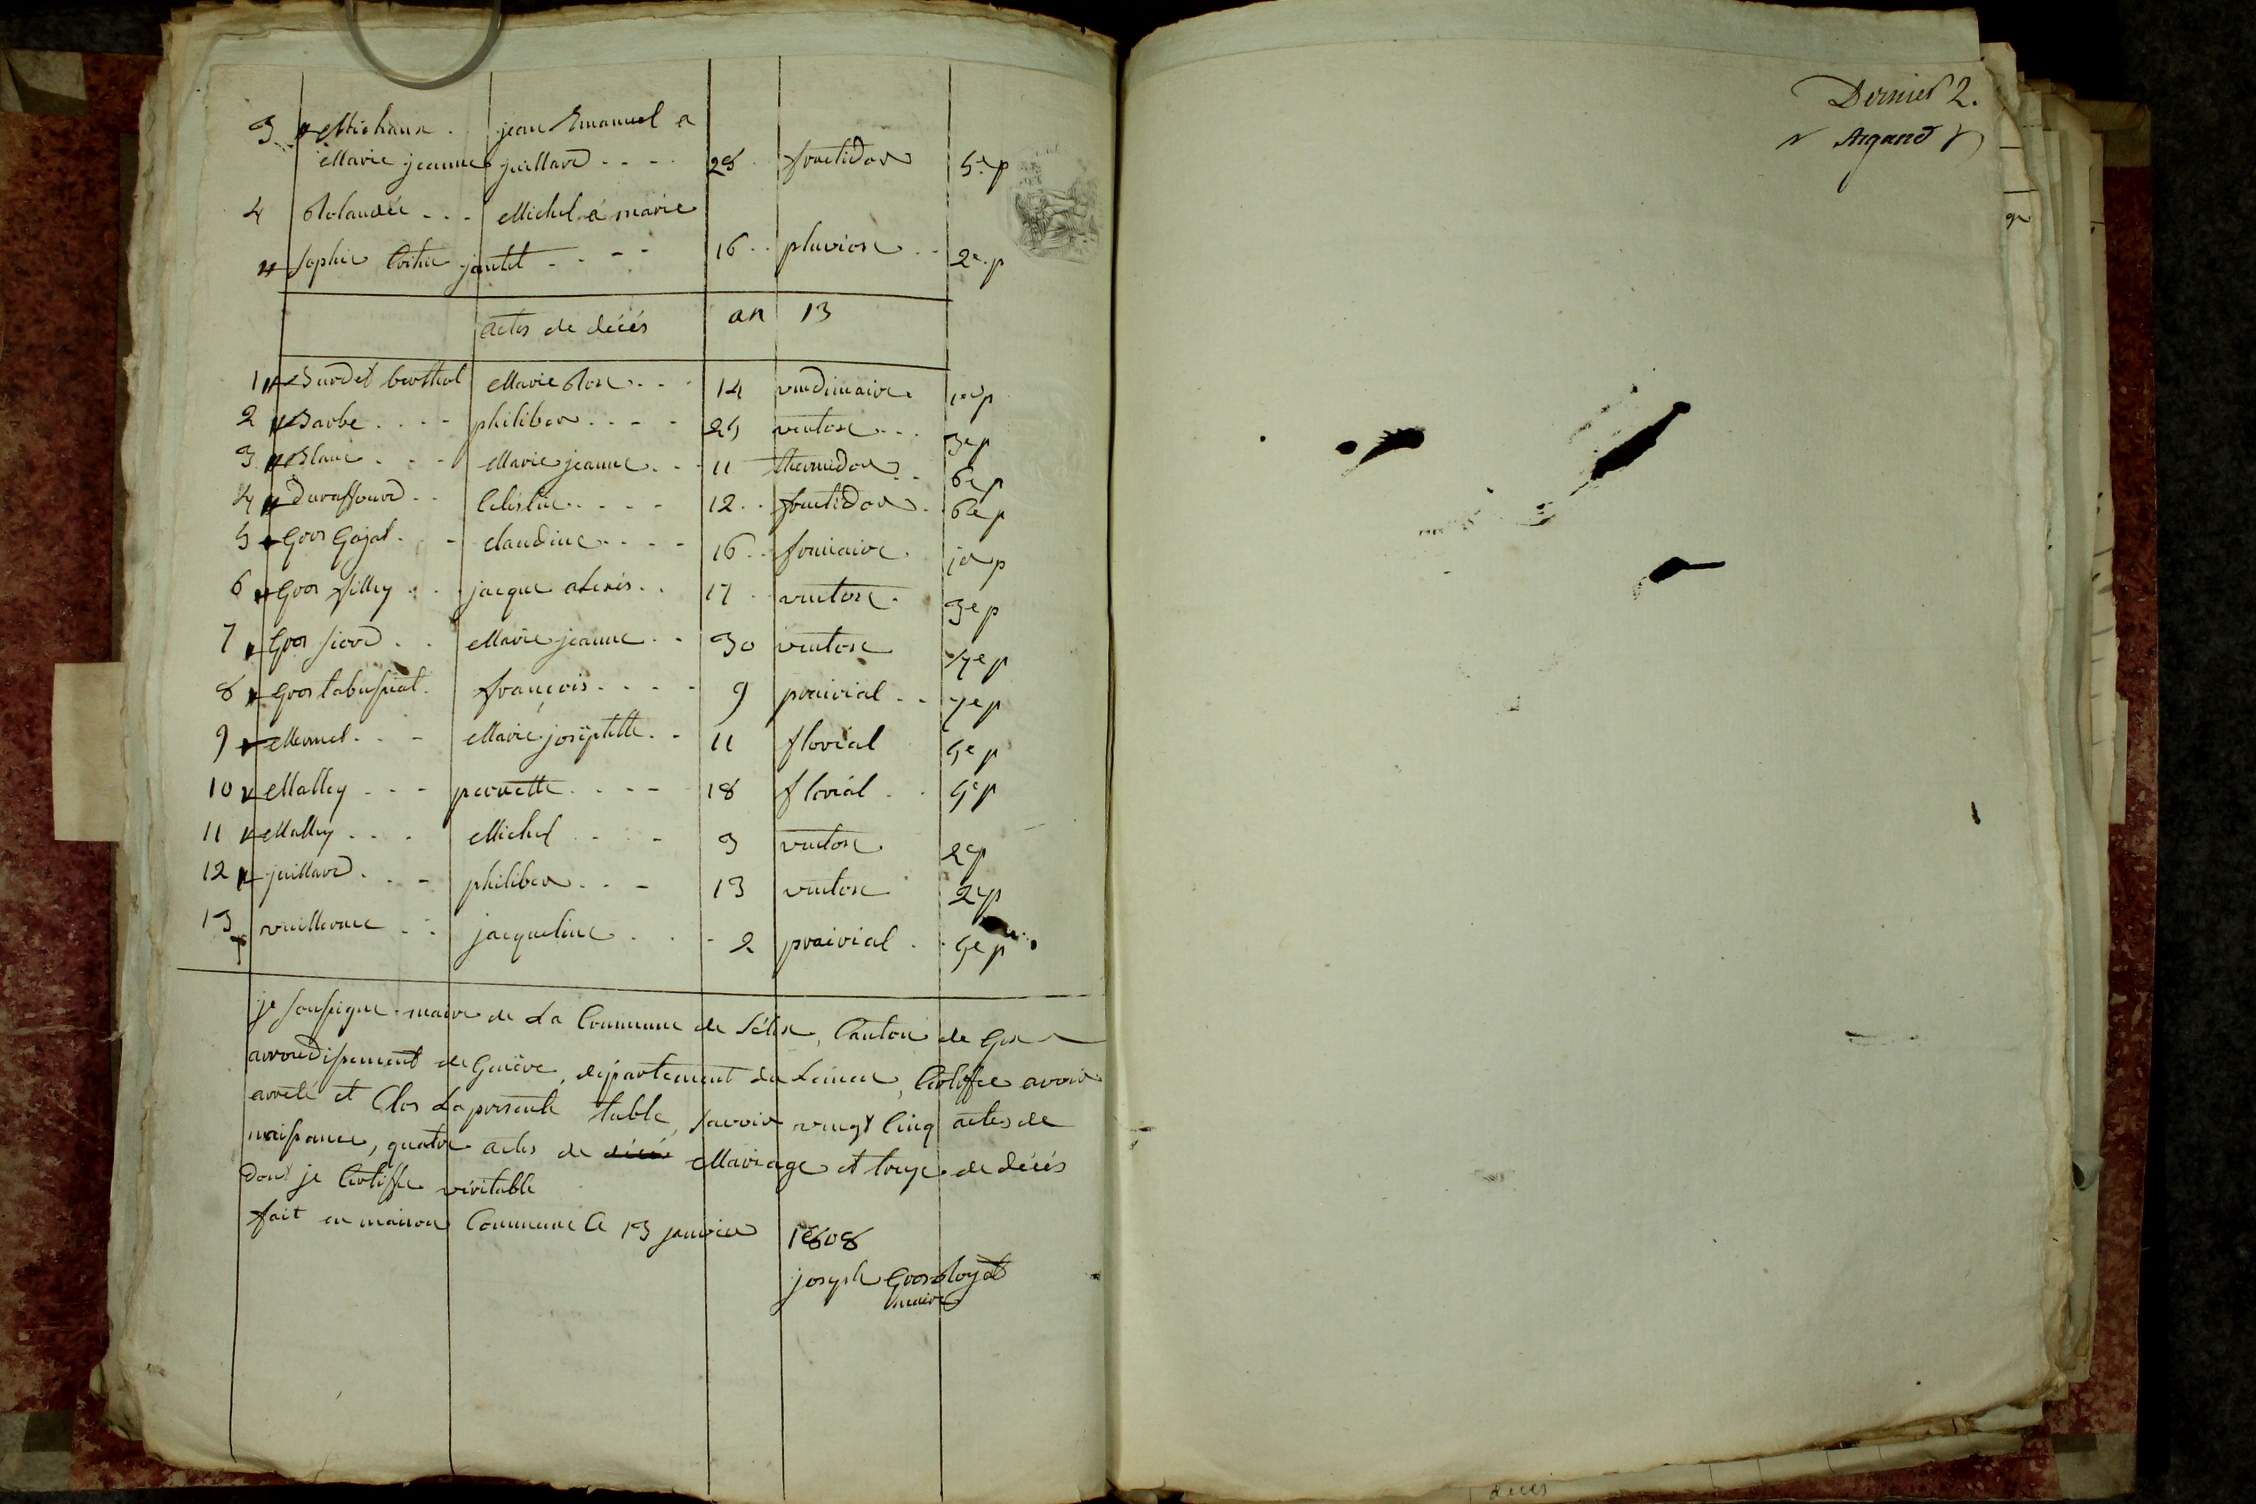 3 Michaux . jean Emanuel a
Marie jeanne juillard - - - - 28 fructidor 5e p
4 Rolandée - - - Michel a marie
Sophie Costin jantet - - - - 16 - - pluviose - - 2e p
actes de décés an 13
1 Burdet berthod Marie Rose - - - 14 vendimaire 1er p
2 Barbe - - - - philiber - - - - 25 ventose - - - 3e p
3 Blanc - - - Marie jeanne - - - 11 thermidor - - 6e p
4 Duraffourd - - Celestin - - - - 12 - - fructidor - 6e p
5 Gros Gojat - - claudine - - - - 16 - - frimaire 1er p
6 Gros filley - - jacque alexis - - 17 - - ventose - 3e p
7 Gros - - Marie jeanne - - 30 ventose 4e p
8 Gros François - - - - 9 prairial - - 4e p
9 Mermet - - - Marie josephtte - - 11 florial 5e p
10 Malley - - - pernette - - - - 18 florial - - 5e p
11 Malley - - - Michel - - - - 3 ventose 2e p
12 juillard - - - philiber - - - 13 ventose 2e p
13 vuillerme - - jacqueline - - - 2 prairial - - 5e p
je soussigne maire de La Commune de Lélex, Canton de Gex
arrondissement de Genève, département du Leman, Certiffie avoir
arrêté et Clos La presente table, savoir vingt Cinq actes de
naissance, quatre actes de décés Mariage et treize de décés
dont je Certiffie véritable
fait en maison Commune le 13 janvier 1808
joseph Grosroyat
maire
Dernier 2.
Argand
décés